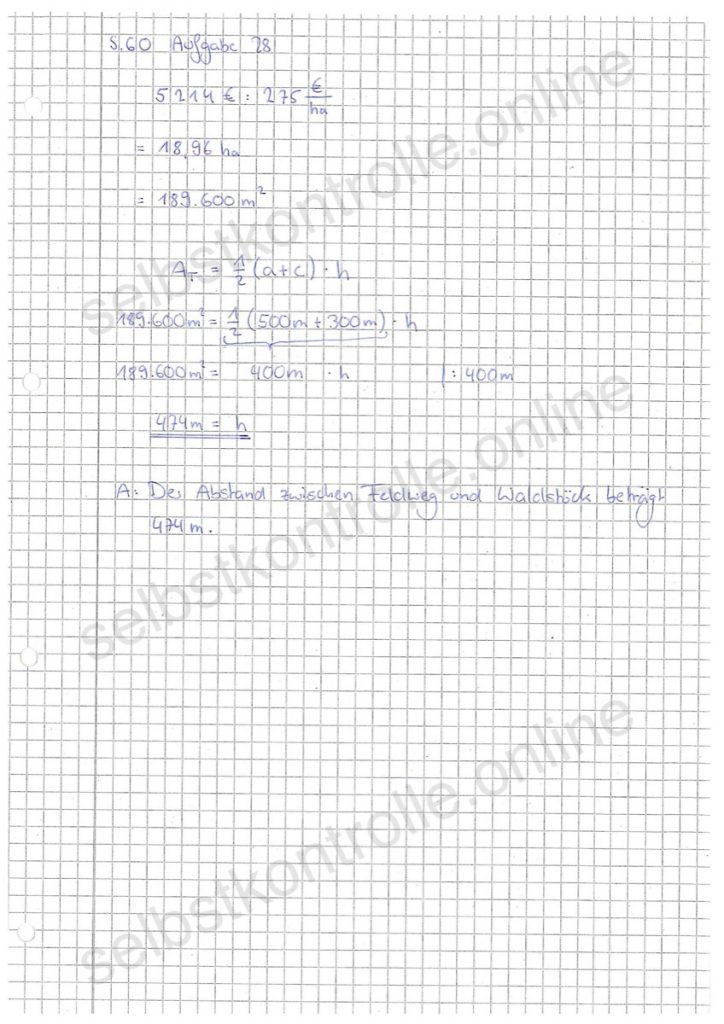 S.60 Aufgabe 28
5214 € : 275 €/ha
= 18,96 ha
= 189.600 m²
A_T = 1/2 (a+c) · h
189.600m² = 1/2 (500m + 300m) · h
189.600m² = 400m · h |: 400m
474m = h
A: Der Abstand zwischen Feldweg und Waldstück beträgt
474 m.
selbstkontrolle.online
selbstkontrolle.online
selbstkontrolle.online